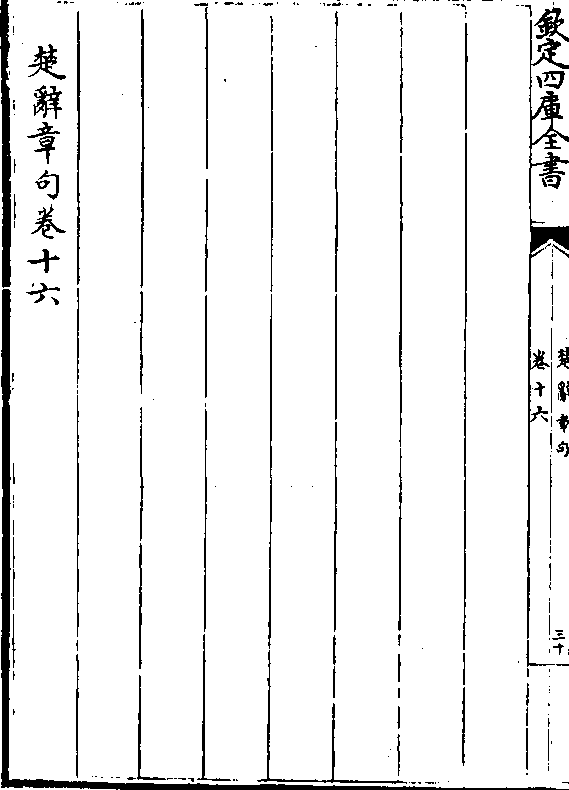 欽定四庫全書
楚辭章句
卷十六
三十
楚辭章句卷十六